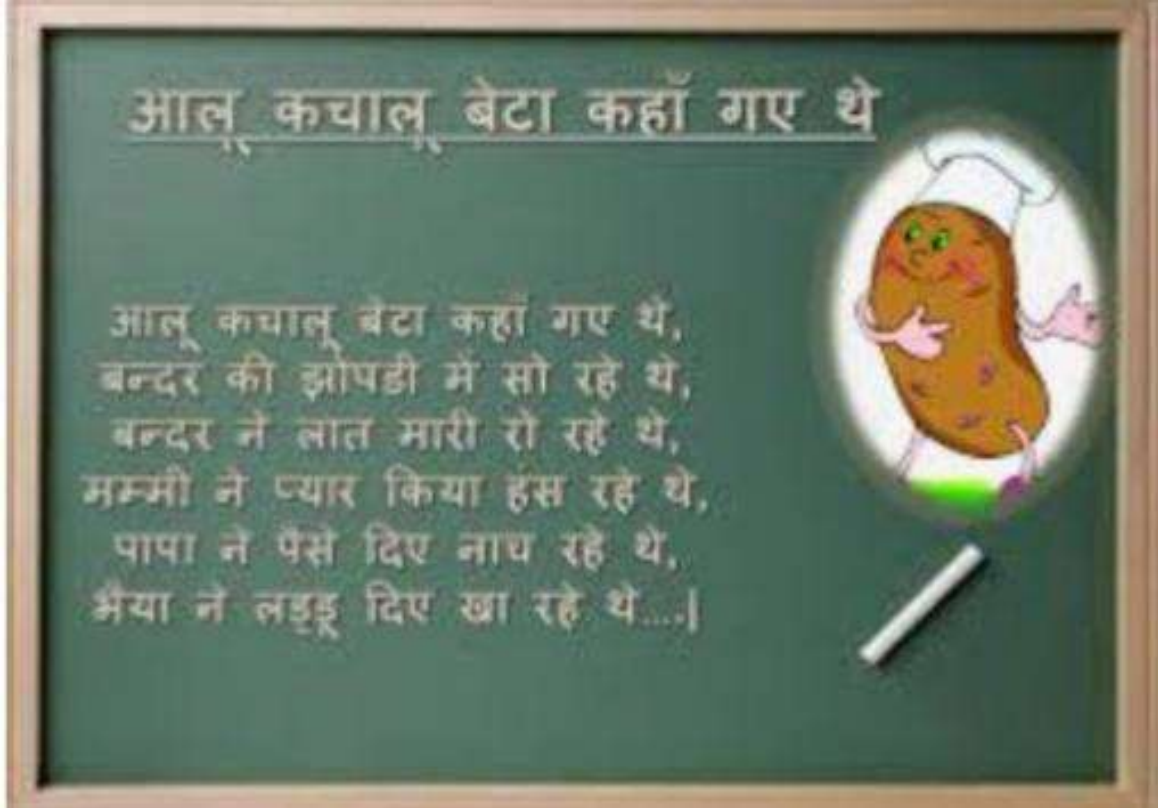 आलू कचालू बेटा कहाँ गए थे
आलू कचालू बेटा कहाँ गए थे,
बन्दर की झोपडी में सो रहे थे,
बन्दर ने लात मारी रो रहे थे,
मम्मी ने प्यार किया हंस रहे थे,
पापा ने पैसे दिए नाच रहे थे,
भैया ने लड्डू दिए खा रहे थे....|